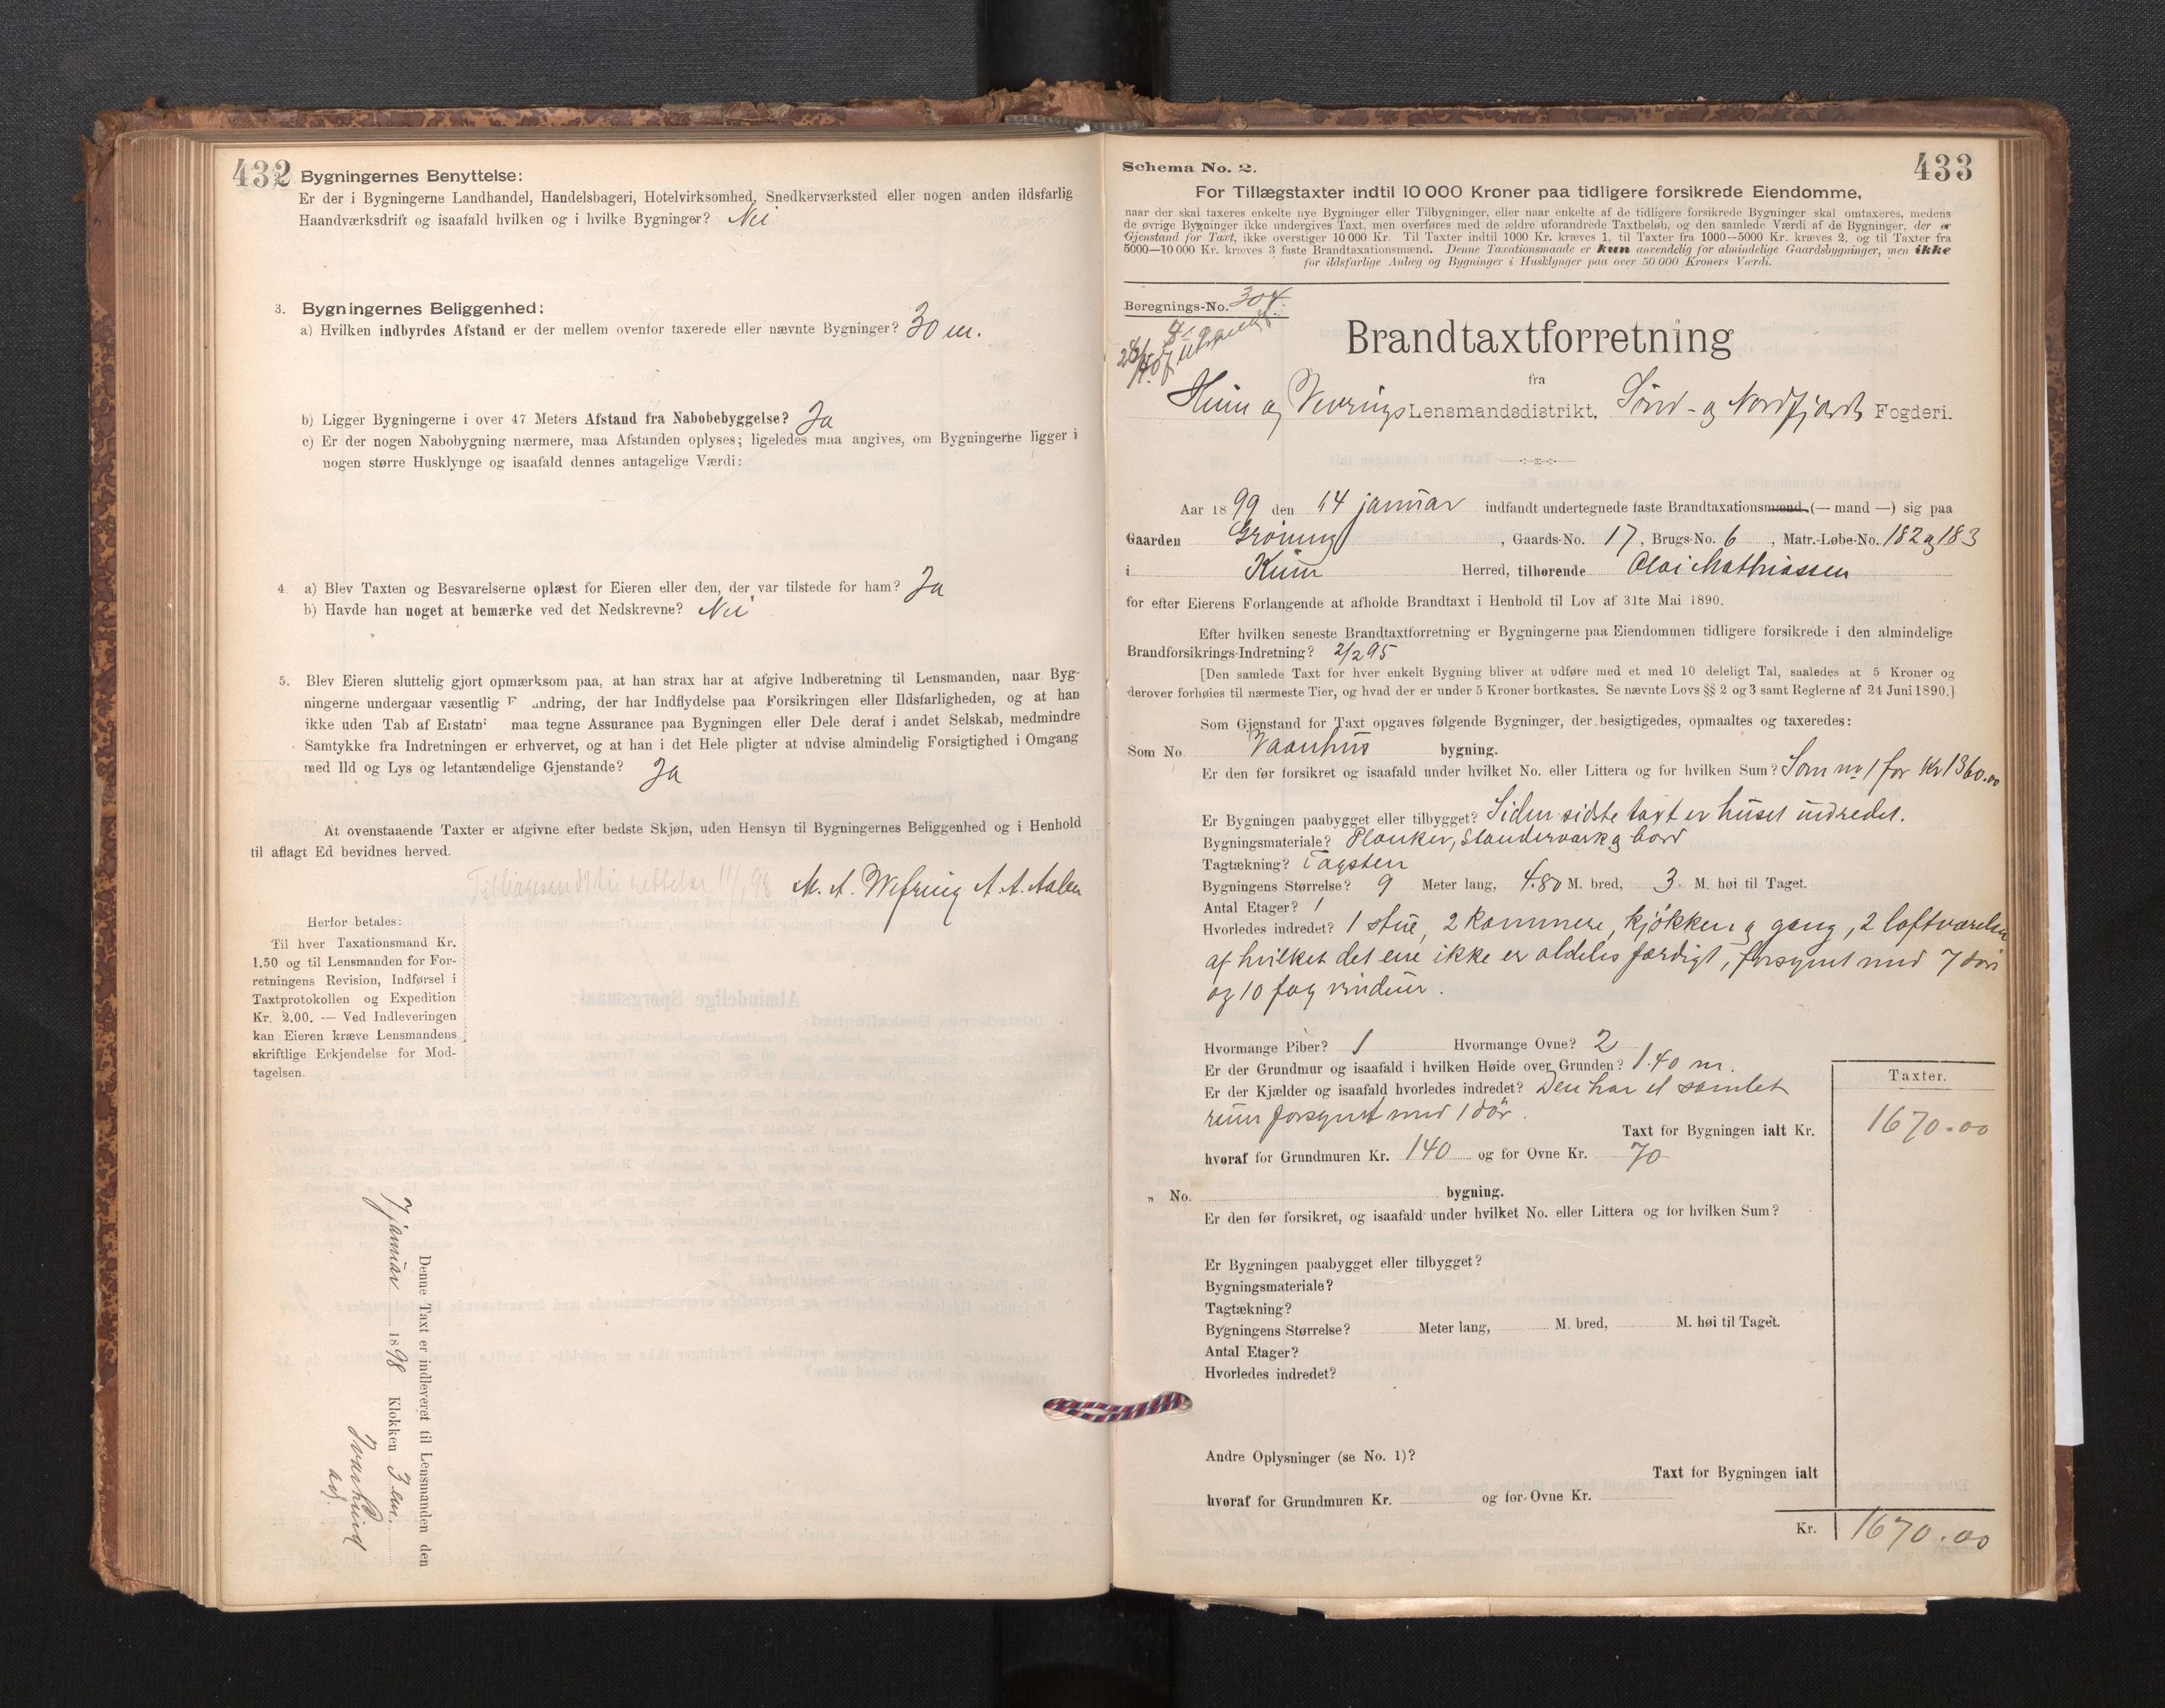 432
Bygningernes Benyttelse:
Er der i Bygningerne Landhandel, Handelsbageri, Hotelvirksomhed, Snedkerværksted eller nogen anden ildsfarlig
Haandværksdrift og isaafald hvilken og i hvilke Bygninger? Nei
3. Bygningernes Beliggenhed:
a) Hvilken indbyrdes Afstand er der mellem ovenfor taxerede eller nævnte Bygninger? 30 m.
b) Ligger Bygningerne i over 47 Meters Afstand fra Nabobebyggelse? Ja
c) Er der nogen Nabobygning nærmere, maa Afstanden oplyses; ligeledes maa angives, om Bygningerne ligger i
nogen større Husklynge og isaafald dennes antagelige Værdi:
4. a) Blev Taxten og Besvarelserne oplæst for Eieren eller den, der var tilstede for ham? Ja
b) Havde han noget at bemærke ved det Nedskrevne? Nei
5. Blev Eieren sluttelig gjort opmærksom paa, at han strax har at afgive Indberetning til Lensmanden, naar Byg-
ningerne undergaar væsentlig F andring, der har Indflydelse paa Forsikringen eller Ildsfarligheden, og at han
ikke uden Tab af Erstatn maa tegne Assurance paa Bygningen eller Dele deraf i andet Selskab, medmindre
Samtykke fra Indretningen er erhvervet, og at han i det Hele pligter at udvise almindelig Forsigtighed i Omgang
med Ild og Lys og letantændelige Gjenstande? Ja
At ovenstaaende Taxter er afgivne efter bedste Skjøn, uden Hensyn til Bygningernes Beliggenhed og i Henhold
til aflagt Ed bevidnes herved.
Tilbagesendt til rettelse 11/1 98 M. A. Wefring A. A. Aalen
Herfor betales:
Til hver Taxationsmand Kr.
1.50 og til Lensmanden for For-
retningens Revision, Indførsel i
Taxtprotokollen og Expedition
Kr. 2.00. — Ved Indleveringen
kan Eieren kræve Lensmandens
skriftlige Erkjendelse for Mod-
tagelsen.
Denne Taxt er indleveret til Lensmanden den
7 januar 1898 Klokken 3 em.
433
Schema No. 2.
For Tillægstaxter indtil 10 000 Kroner paa tidligere forsikrede Eiendomme,
naar der skal taxeres enkelte nye Bygninger eller Tilbygninger, eller naar enkelte af de tidligere forsikrede Bygninger skal omtaxeres, medens
de øvrige Bygninger ikke undergives Taxt, men overføres med de ældre uforandrede Taxtbeløb, og den samlede Værdi af de Bygninger, der er
Gjenstand for Taxt, ikke overstiger 10 000 Kr. Til Taxter indtil 1000 Kr. kræves 1, til Taxter fra 1000—5000 Kr. kræves 2, og til Taxter fra
5000—10 000 Kr. kræves 3 faste Brandtaxationsmænd. Denne Taxationsmaade er kun anvendelig for almindelige Gaardsbygninger, men ikke
for ildsfarlige Anlæg og Bygninger i Husklynger paa over 50 000 Kroners Værdi.
Beregnings-No. 304.
Brandtaxtforretning
fra
Kinn og Vevrings Lensmandsdistrikt, Sönd- og Nordfjords Fogderi.
Aar 1899 den 14 januar indfandt undertegnede faste Brandtaxationsmænd (— mand —) sig paa
Gaarden Gröning, Gaards-No. 17, Brugs-No. 6, Matr.-Løbe-No. 182 og 183
i Kinn Herred, tilhørende Olai Mathiassen
for efter Eierens Forlangende at afholde Brandtaxt i Henhold til Lov af 31te Mai 1890.
Efter hvilken seneste Brandtaxtforretning er Bygningerne paa Eiendommen tidligere forsikrede i den almindelige
Brandforsikrings-Indretning? 2/2 95
[Den samlede Taxt for hver enkelt Bygning bliver at udføre med et med 10 deleligt Tal, saaledes at 5 Kroner og
derover forhøies til nærmeste Tier, og hvad der er under 5 Kroner bortkastes. Se nævnte Lovs §§ 2 og 3 samt Reglerne af 24 Juni 1890.]
Som Gjenstand for Taxt opgaves følgende Bygninger, der besigtigedes, opmaaltes og taxeredes:
Som No. Vaanhus bygning.
Er den før forsikret og isaafald under hvilket No. eller Littera og for hvilken Sum? Som no 1 for Kr 1360.00
Er Bygningen paabygget eller tilbygget? Siden sidste taxt er huset indredet.
Bygningsmateriale? Planker, Standerverk og bord
Tagtækning? Tagsten
Bygningens Størrelse? 9 Meter lang, 4.80 M. bred, 3 M. høi til Taget.
Antal Etager? 1
Hvorledes indredet? 1 stue, 2 kammere, kjökken og gang, 2 loftværelser
af hvilket det ene ikke er aldeles færdigt, forsynet med 7 döri
og 10 fag vinduer.
Hvormange Piber? 1 Hvormange Ovne? 2
Er der Grundmur og isaafald i hvilken Høide over Grunden? 1.40 m.
Er der Kjælder og isaafald hvorledes indredet? Den har et samlet
rum forsynet med 1 dör.
Taxter.
Taxt for Bygningen ialt Kr. 1670.00
hvoraf for Grundmuren Kr. 140 og for Ovne Kr. 70
„ No. bygning.
Er den før forsikret, og isaafald under hvilket No. eller Littera og for hvilken Sum?
Er Bygningen paabygget eller tilbygget?
Bygningsmateriale?
Tagtækning?
Bygningens Størrelse? Meter lang, M. bred, M. høi til Taget.
Antal Etager?
Hvorledes indredet?
Andre Oplysninger (se No. 1)?
Taxt for Bygningen ialt
hvoraf for Grundmuren Kr. og for Ovne Kr.
Kr. 1670.00